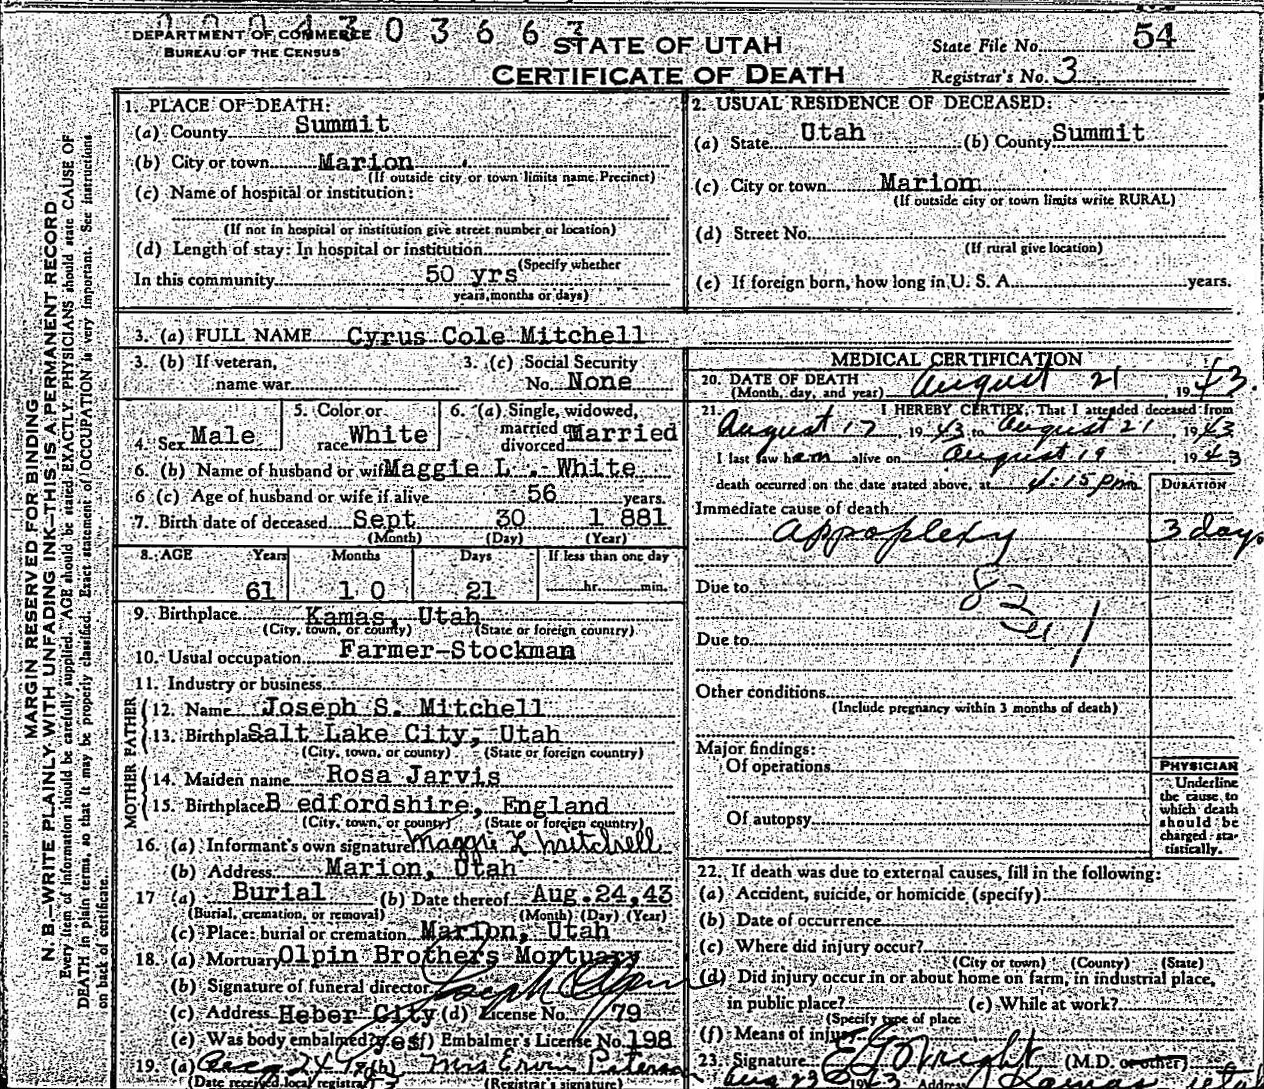 0 0 0 4 3 0 3 6 6 3
DEPARTMENT OF COMMERCE
BUREAU OF THE CENSUS
STATE OF UTAH
CERTIFICATE OF DEATH
State File No. 54
Registrar's No. 3
MARGIN RESERVED FOR BINDING
N. B.—WRITE PLAINLY WITH UNFADING INK—THIS IS A PERMANENT RECORD
Every item of information should be carefully supplied. AGE should be stated EXACTLY. PHYSICIANS should state CAUSE OF
DEATH in plain terms, so that it may be properly classified. Exact statement of OCCUPATION is very important. See instructions
on back of certificate.
1. PLACE OF DEATH:
(a) County Summit
(b) City or town Marion
(If outside city or town limits name Precinct)
(c) Name of hospital or institution:
(If not in hospital or institution give street number or location)
(d) Length of stay: In hospital or institution
(Specify whether
In this community 50 yrs
years, months or days)
2. USUAL RESIDENCE OF DECEASED:
(a) State Utah (b) County Summit
(c) City or town Marion
(If outside city or town limits write RURAL)
(d) Street No.
(If rural give location)
(e) If foreign born, how long in U. S. A. years.
3. (a) FULL NAME Cyrus Cole Mitchell
3. (b) If veteran, name war
3. (c) Social Security No. None
4. Sex Male
5. Color or race White
6. (a) Single, widowed, married or divorced Married
6. (b) Name of husband or wife Maggie L. White
6 (c) Age of husband or wife if alive 56 years.
7. Birth date of deceased Sept 30 1 881
(Month) (Day) (Year)
8. AGE Years Months Days If less than one day
61 1 0 21 hr. min.
9. Birthplace Kamas, Utah
(City, town, or county) (State or foreign country)
10. Usual occupation Farmer-Stockman
11. Industry or business
FATHER
12. Name Joseph S. Mitchell
13. Birthplace Salt Lake City, Utah
(City, town, or county) (State or foreign country)
MOTHER
14. Maiden name Rosa Jarvis
15. Birthplace B edfordshire, England
(City, town, or county) (State or foreign country)
16. (a) Informant's own signature Maggie L Mitchell
(b) Address Marion, Utah
17 (a) Burial (b) Date thereof Aug. 24, 43
(Burial, cremation, or removal) (Month) (Day) (Year)
(c) Place: burial or cremation Marion, Utah
18. (a) Mortuary Olpin Brothers Mortuary
(b) Signature of funeral director Joseph Olpin
(c) Address Heber City (d) License No. 79
(e) Was body embalmed? yes (f) Embalmer's License No. 198
19. (a) (b) Mrs Ervin Peterson
(Date received local registrar) (Registrar's signature)
MEDICAL CERTIFICATION
20. DATE OF DEATH
(Month, day, and year) August 21 1943.
21. I HEREBY CERTIFY, That I attended deceased from
August 17 1943 to August 21, 1943
I last saw him alive on August 19 1943
death occurred on the date stated above, at 4:15 pm
DURATION
Immediate cause of death
Appoplexy 3 days
Due to 83
Due to
Other conditions
(Include pregnancy within 3 months of death)
Major findings:
Of operations
Of autopsy
PHYSICIAN
Underline
the cause to
which death
should be
charged sta-
tistically.
22. If death was due to external causes, fill in the following:
(a) Accident, suicide, or homicide (specify)
(b) Date of occurrence
(c) Where did injury occur?
(City or town) (County) (State)
(d) Did injury occur in or about home on farm, in industrial place,
in public place? (e) While at work?
(Specify type of place
(f) Means of injury
23. Signature (M.D. or other)
Aug 23 1943 Address Kamas